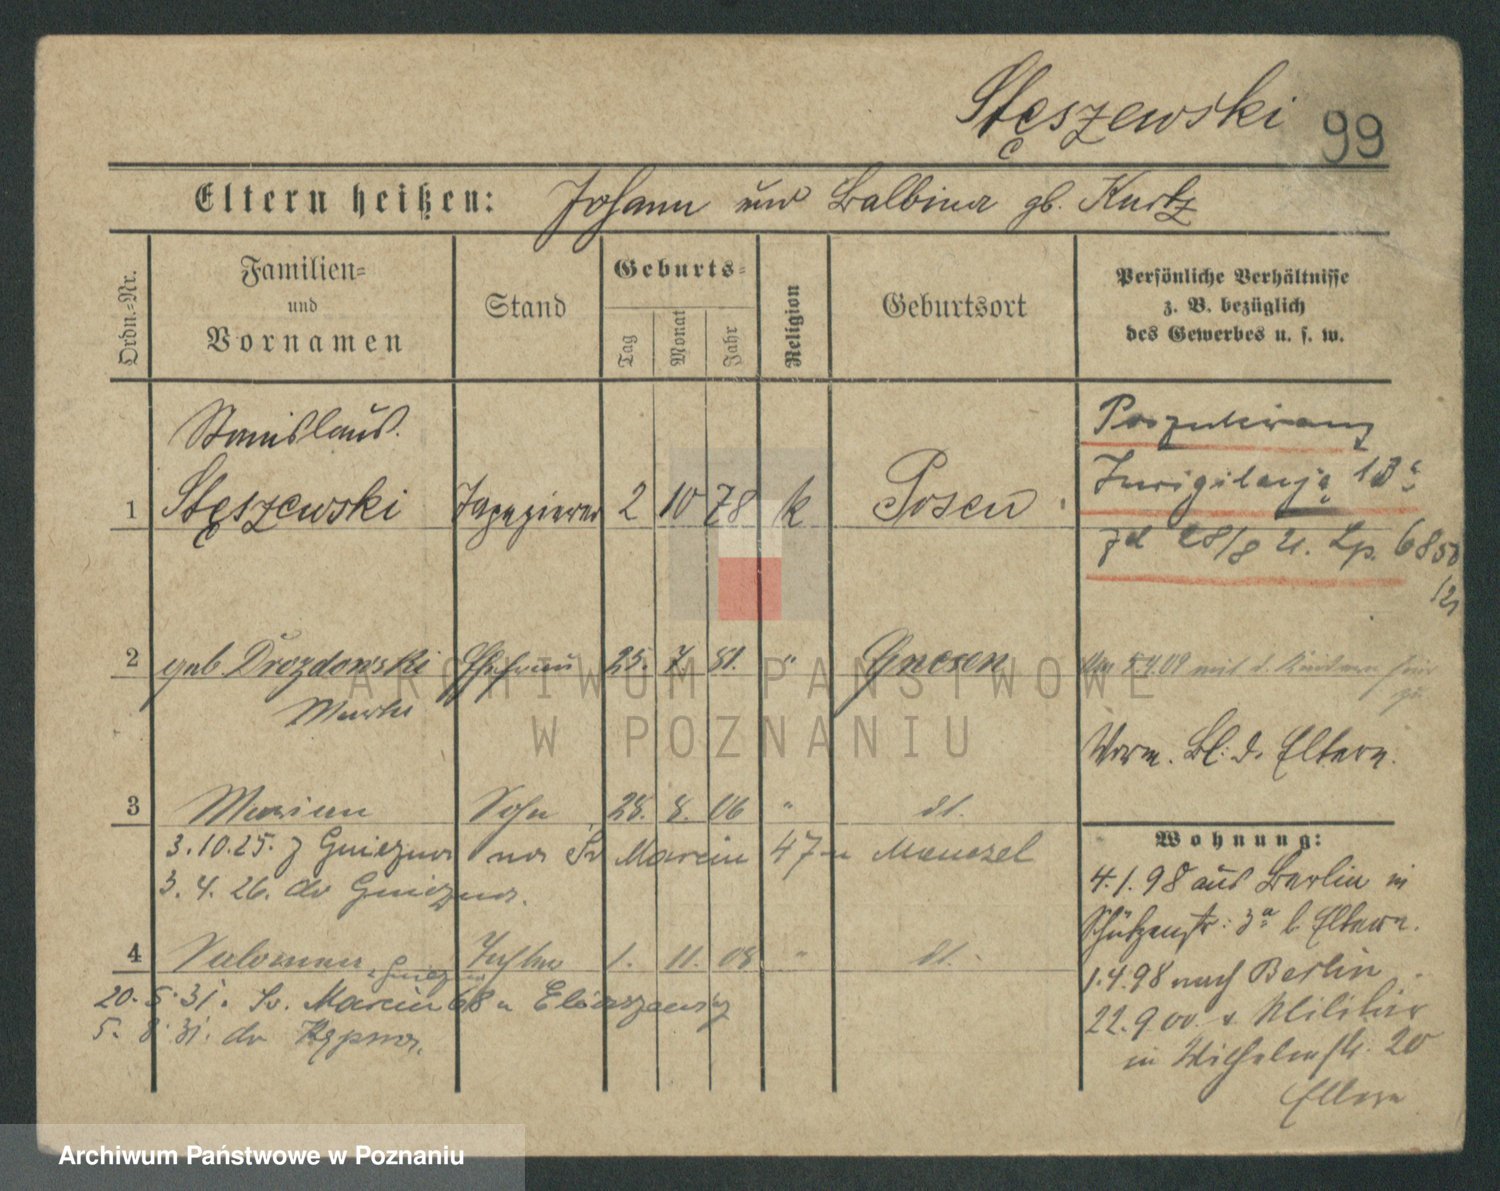 Stęszewski 99
Eltern heißen: Johann und Balbina gb. Kurtz
Ordn.-Nr.
Familien-
und
Vornamen
Stand
Geburts-
Tag
Monat
Jahr
Religion
Geburtsort
Persönliche Verhältnisse
z. B. bezüglich
des Gewerbes u. s. w.
Stanislaus.
1 Stęszewski Tapezierer 2 10 78 k Posen
Poszukiwany
Inwigilacja
28/8
2 geb. Drozdowski Ehefrau 25. 7. 81. " Gnesen
4.09 mit d. Kindern
Vorm. Bl. d. Eltern.
3 Marian Sohn 28. 8. 06 " dt.
3.10.25. z Gniezna na Św Marcin 47 u Menczel
3. 4. 26. do Gniezna.
4 Salomea Tochter 1. 11. 08 " dt.
20. 5. 31. Św. Marcin 68 u
5. 8. 31. do
Wohnung:
4.1.98 aus Berlin in
Schützenstr: 3a b. Eltern.
1.4.98 nach Berlin
22.9 00 v Militär
in Wilhelmstr. 20
Eltern
ARCHIWUM PAŃSTWOWE
W POZNANIU
Archiwum Państwowe w Poznaniu